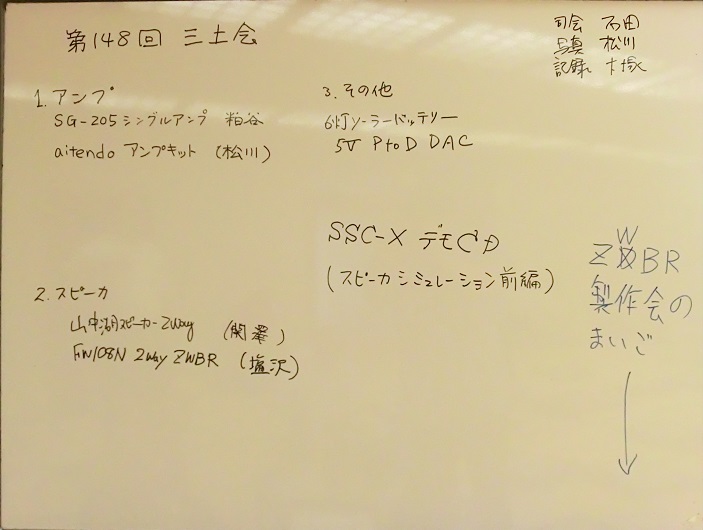 第148回 三土会
司会 石田
写真 松川
記録 大塚
1. アンプ
SG-205 シングルアンプ 粕谷
aitendo アンプキット (松川)
2. スピーカ
山中湖スピーカー 2way (関澤)
FW108N 2way ZWBR (塩沢)
3. その他
6灯ソーラーバッテリー
5V PtoD DAC
SSC-X デモCD
(スピーカシミュレーション前編)
ZWBR
製作会の
まいご